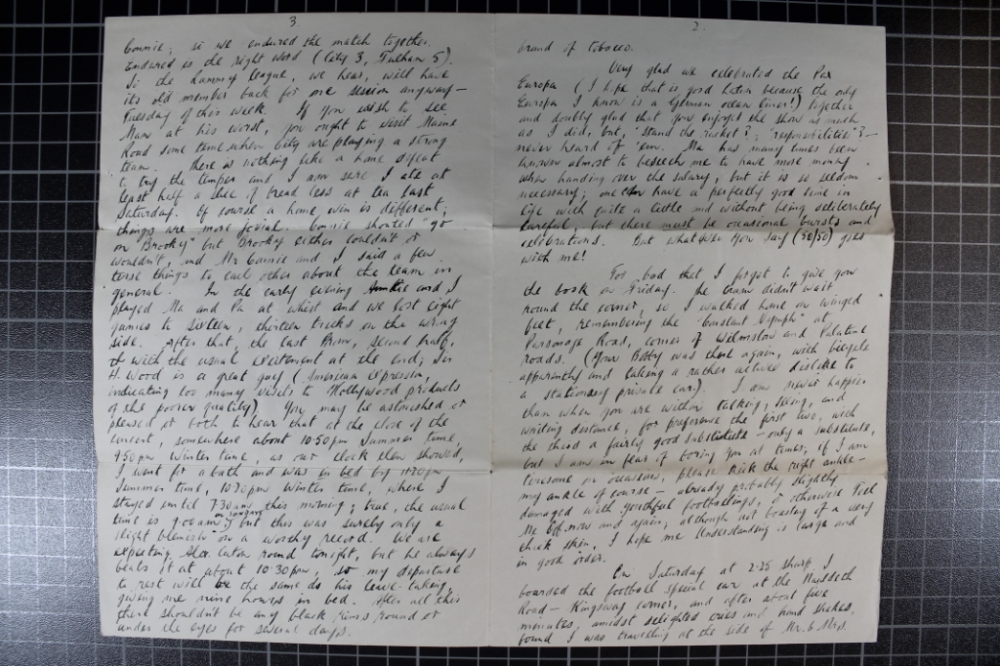 2.
brand of tobacco.
Very glad we celebrated the Pax
Europa (I hope that is good Latin because the only
Europa I know is a German ocean liner!) together
and doubly glad that you enjoyed the show as much
as I did, but, "stand the racket"?; "responsibilities"? -
never heard of 'em. Ma has many times been
known almost to beseech me to have more money
when handing over the salary, but it is so seldom
necessary; one can have a perfectly good time in
life with quite a little and without being deliberately
careful, but there must be occasional bursts and
celebrations. But whatever you say (50/50) goes
with me!
Too bad that I forgot to give you
the book on Friday. The tram didn't wait
round the corner, so I walked home on winged
feet, remembering the "Constant Nymph" at
Parsonage Road, corner of Wilmslow and Palatine
roads. (Your Bobby was there again, with bicycle
apparently and taking a rather active dislike to
a stationary private car.) I am never happier
than when you are within talking, seeing, and
writing distance, for preference the first two, with
the third a fairly good substitute - only a substitute,
but I am in fear of boring you at times; if I am
tiresome on occasion, please kick the right ankle -
my ankle of course - already probably slightly
damaged with youthful footballings, or otherwise tell
me off now and again; although not boasting of a very
thick skin, I hope me understanding is large and
in good order.
On Saturday at 2-25 sharp I
boarded the football special car at the
Road - Kingsway corner, and after about five
minutes, amidst delighted cries and hand shakes,
found I was travelling at the side of Mr. & Mrs.
3
Connie; so we endured the match together.
Endured is the right word (City 3, Fulham 5).
So the Rummy League, we hear, will have
its old member back for one session anyway -
Tuesday of this week. If you wish to see
Man at his worst, you ought to visit Maine
Road some time when City are playing a strong
team. There is nothing like a home defeat
to try the temper and I am sure I ate at
least half a slice of bread less at tea last
Saturday. Of course a home win is different;
things are more jovial. Connie shouted "go
on Brooky" but Brooky either couldn't or
wouldn't, and Mr Connie and I said a few
terse things to each other about the team in
general. In the early evening Auntie and I
played Ma and Pa at whist and we lost eight
games to sixteen, thirteen tricks on the wrong
side. After that, the last Prom, second half,
with the usual excitement at the end; Sir
H. Wood is a great guy (American expression,
indicating too many visits to Hollywood products
of the poorer quality). You may be astonished or
pleased or both to hear that at the close of the
concert, somewhere about 10-50pm Summer time,
9-50pm Winter time, as our clock then showed,
I went for a bath and was in bed by 11-30pm
Summer time, 10-30pm Winter time, where I
stayed until 7-30am this morning; true, the usual
time is 9-00am on Sundays but this was surely only a
slight blemish on a worthy record. We are
expecting Alex. round tonight, but he always
beats it at about 10-30pm, so my departure
to rest will be the same as his leave-taking
giving me nine hours in bed. After all this
there shouldn't be any black rims round or
under the eyes for several days.